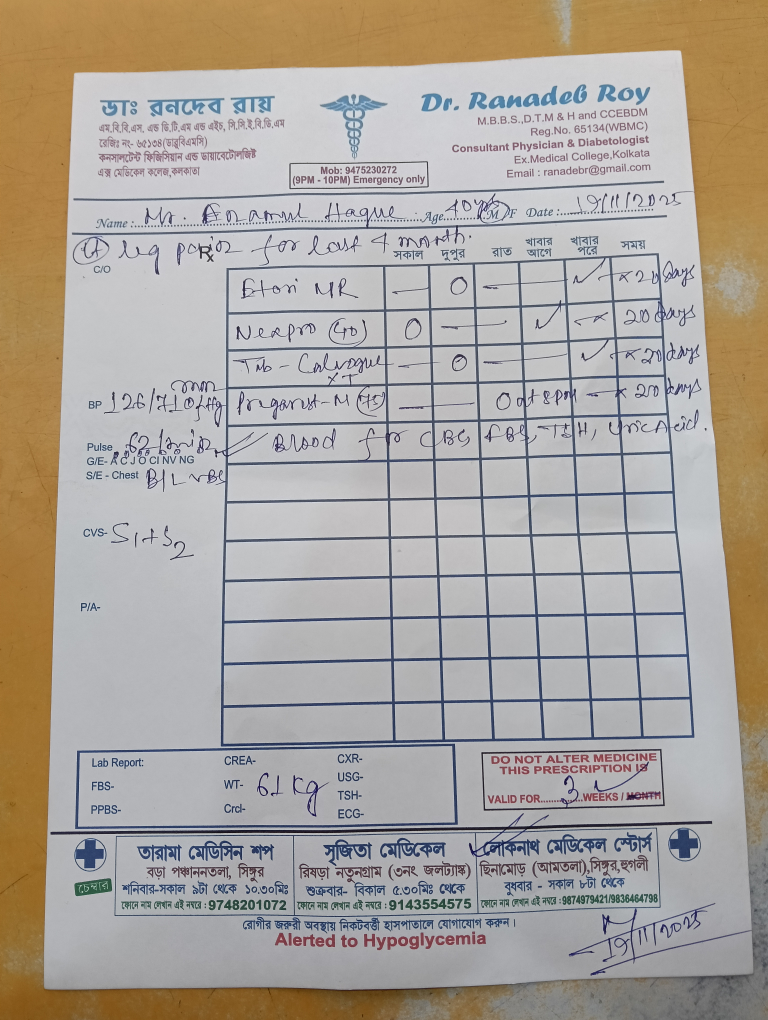 ডাঃ রনদেব রায়
এম.বি.বি.এস. এন্ড ডি.টি.এম এন্ড এইচ, সি.সি.ই.বি.ডি.এম
রেজিঃ নং- ৬৫১৩৪(ডাব্লুবিএমসি)
কনসালটেন্ট ফিজিসিয়ান এন্ড ডায়াবেটোলজিষ্ট
এক্স মেডিকেল কলেজ,কলকাতা
Mob: 9475230272
(9PM - 10PM) Emergency only
Dr. Ranadeb Roy
M.B.B.S.,D.T.M & H and CCEBDM
Reg.No. 65134(WBMC)
Consultant Physician & Diabetologist
Ex.Medical College,Kolkata
Email : ranadebr@gmail.com
Name : Mr. Enamul Haque Age 40 yrs M/F Date : 19/11/2025
leg pain for last 4 month.
C/O
Rx
সকাল দুপুর রাত খাবার আগে খাবার পরে সময়
Etori MR — 0 — — ✓ × 20 days
Nexpro (40) 0 — — ✓ — × 20 days
Tab - XT — 0 — — ✓ × 20 days
M (75) — — 0 at 8 pm — × 20 days
Blood for CBC, FBS, TSH, Uric Acid.
BP 126/71 mm of Hg
Pulse 62/min
G/E- A C J O CI NV NG
S/E - Chest B/L VBS
CVS- S1+S2
P/A-
Lab Report:
CREA-
CXR-
FBS-
WT- 61 kg
USG-
TSH-
PPBS-
Crcl-
ECG-
DO NOT ALTER MEDICINE
THIS PRESCRIPTION IS
VALID FOR......3......WEEKS / MONTH
চেম্বার
তারামা মেডিসিন শপ
বড়া পঞ্চাননতলা, সিঙ্গুর
শনিবার-সকাল ৯টা থেকে ১০.৩০মিঃ
ফোনে নাম লেখান এই নম্বরে : 9748201072
সৃজিতা মেডিকেল
রিষড়া নতুনগ্রাম (৩নং জলট্যাঙ্ক)
শুক্রবার- বিকাল ৫.৩০মিঃ থেকে
ফোনে নাম লেখান এই নম্বরে : 9143554575
লোকনাথ মেডিকেল স্টোর্স
ছিনামোড় (আমতলা),সিঙ্গুর,হুগলী
বুধবার - সকাল ৮টা থেকে
ফোনে নাম লেখান এই নম্বরে : 9874979421/9836464798
রোগীর জরুরী অবস্থায় নিকটবর্ত্তী হাসপাতালে যোগাযোগ করুন।
Alerted to Hypoglycemia
19/11/2025